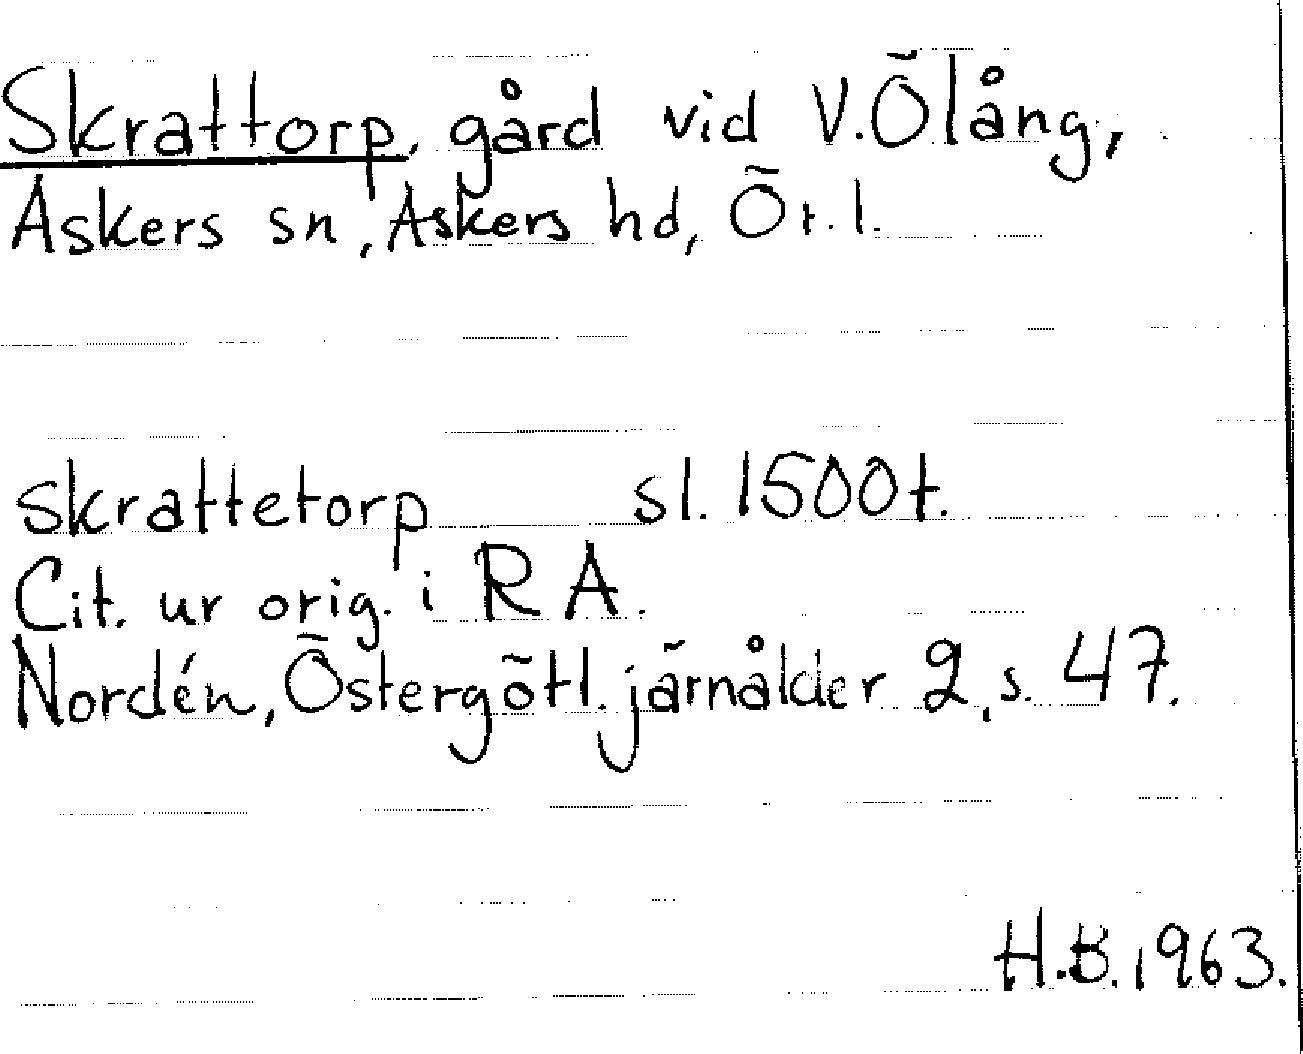 Skrattorp, gård vid V. Ölång,
Askers sn, Askers hd, Ör. l.
skrattetorp sl. 1500t.
Cit. ur orig. i RA.
Nordén, Östergötl. järnålder 2, s. 47.
H.B. 1963.